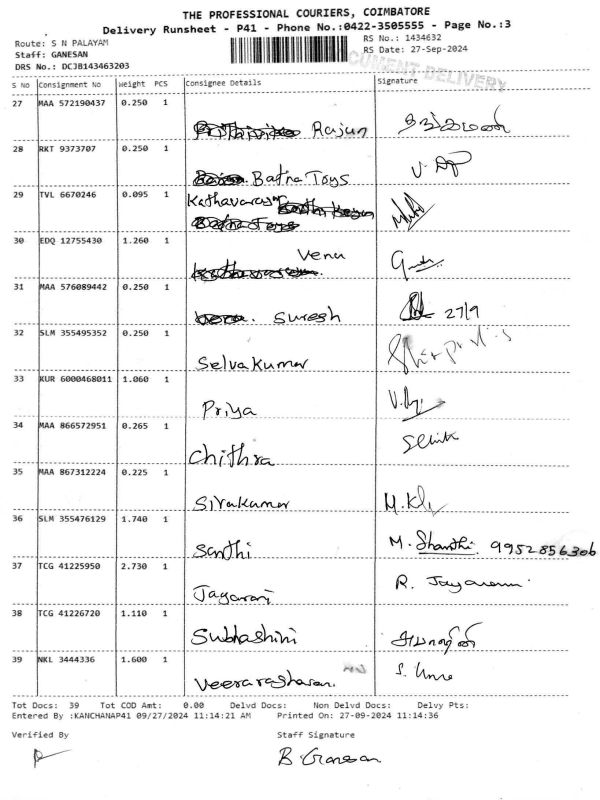 THE PROFESSIONAL COURIERS, COIMBATORE
Delivery Runsheet - P41 - Phone No.:0422-3505555 - Page No.:3
Route: S N PALAYAM
RS No.: 1434632
Staff: GANESAN
RS Date: 27-Sep-2024
DRS No.: DCJB143463203
CUMENT DELIVERY
S No Consignment No Weight PCS Consignee Details Signature
27 MAA 572190437 0.250 1 Rajun
28 RKT 9373707 0.250 1 Batna Toys
29 TVL 6670246 0.095 1 Kathavarayan
30 EDQ 12755430 1.260 1 Venu
31 MAA 576089442 0.250 1 Suresh 27/9
32 SLM 355495352 0.250 1 Selvakumar
33 KUR 6000468011 1.060 1 Priya
34 MAA 866572951 0.265 1 Chithra
35 MAA 867312224 0.225 1 Sivakumar
36 SLM 355476129 1.740 1 Santhi M. Shanthi 9952856306
37 TCG 41225950 2.730 1 Jayaram R. Jayaram
38 TCG 41226720 1.110 1 Subhashini
39 NKL 3444336 1.600 1 Veeraragharan
Tot Docs: 39 Tot COD Amt: 0.00 Delvd Docs: Non Delvd Docs: Delvy Pts:
Entered By :KANCHANAP41 09/27/2024 11:14:21 AM Printed On: 27-09-2024 11:14:36
Verified By Staff Signature
B. Ganesan